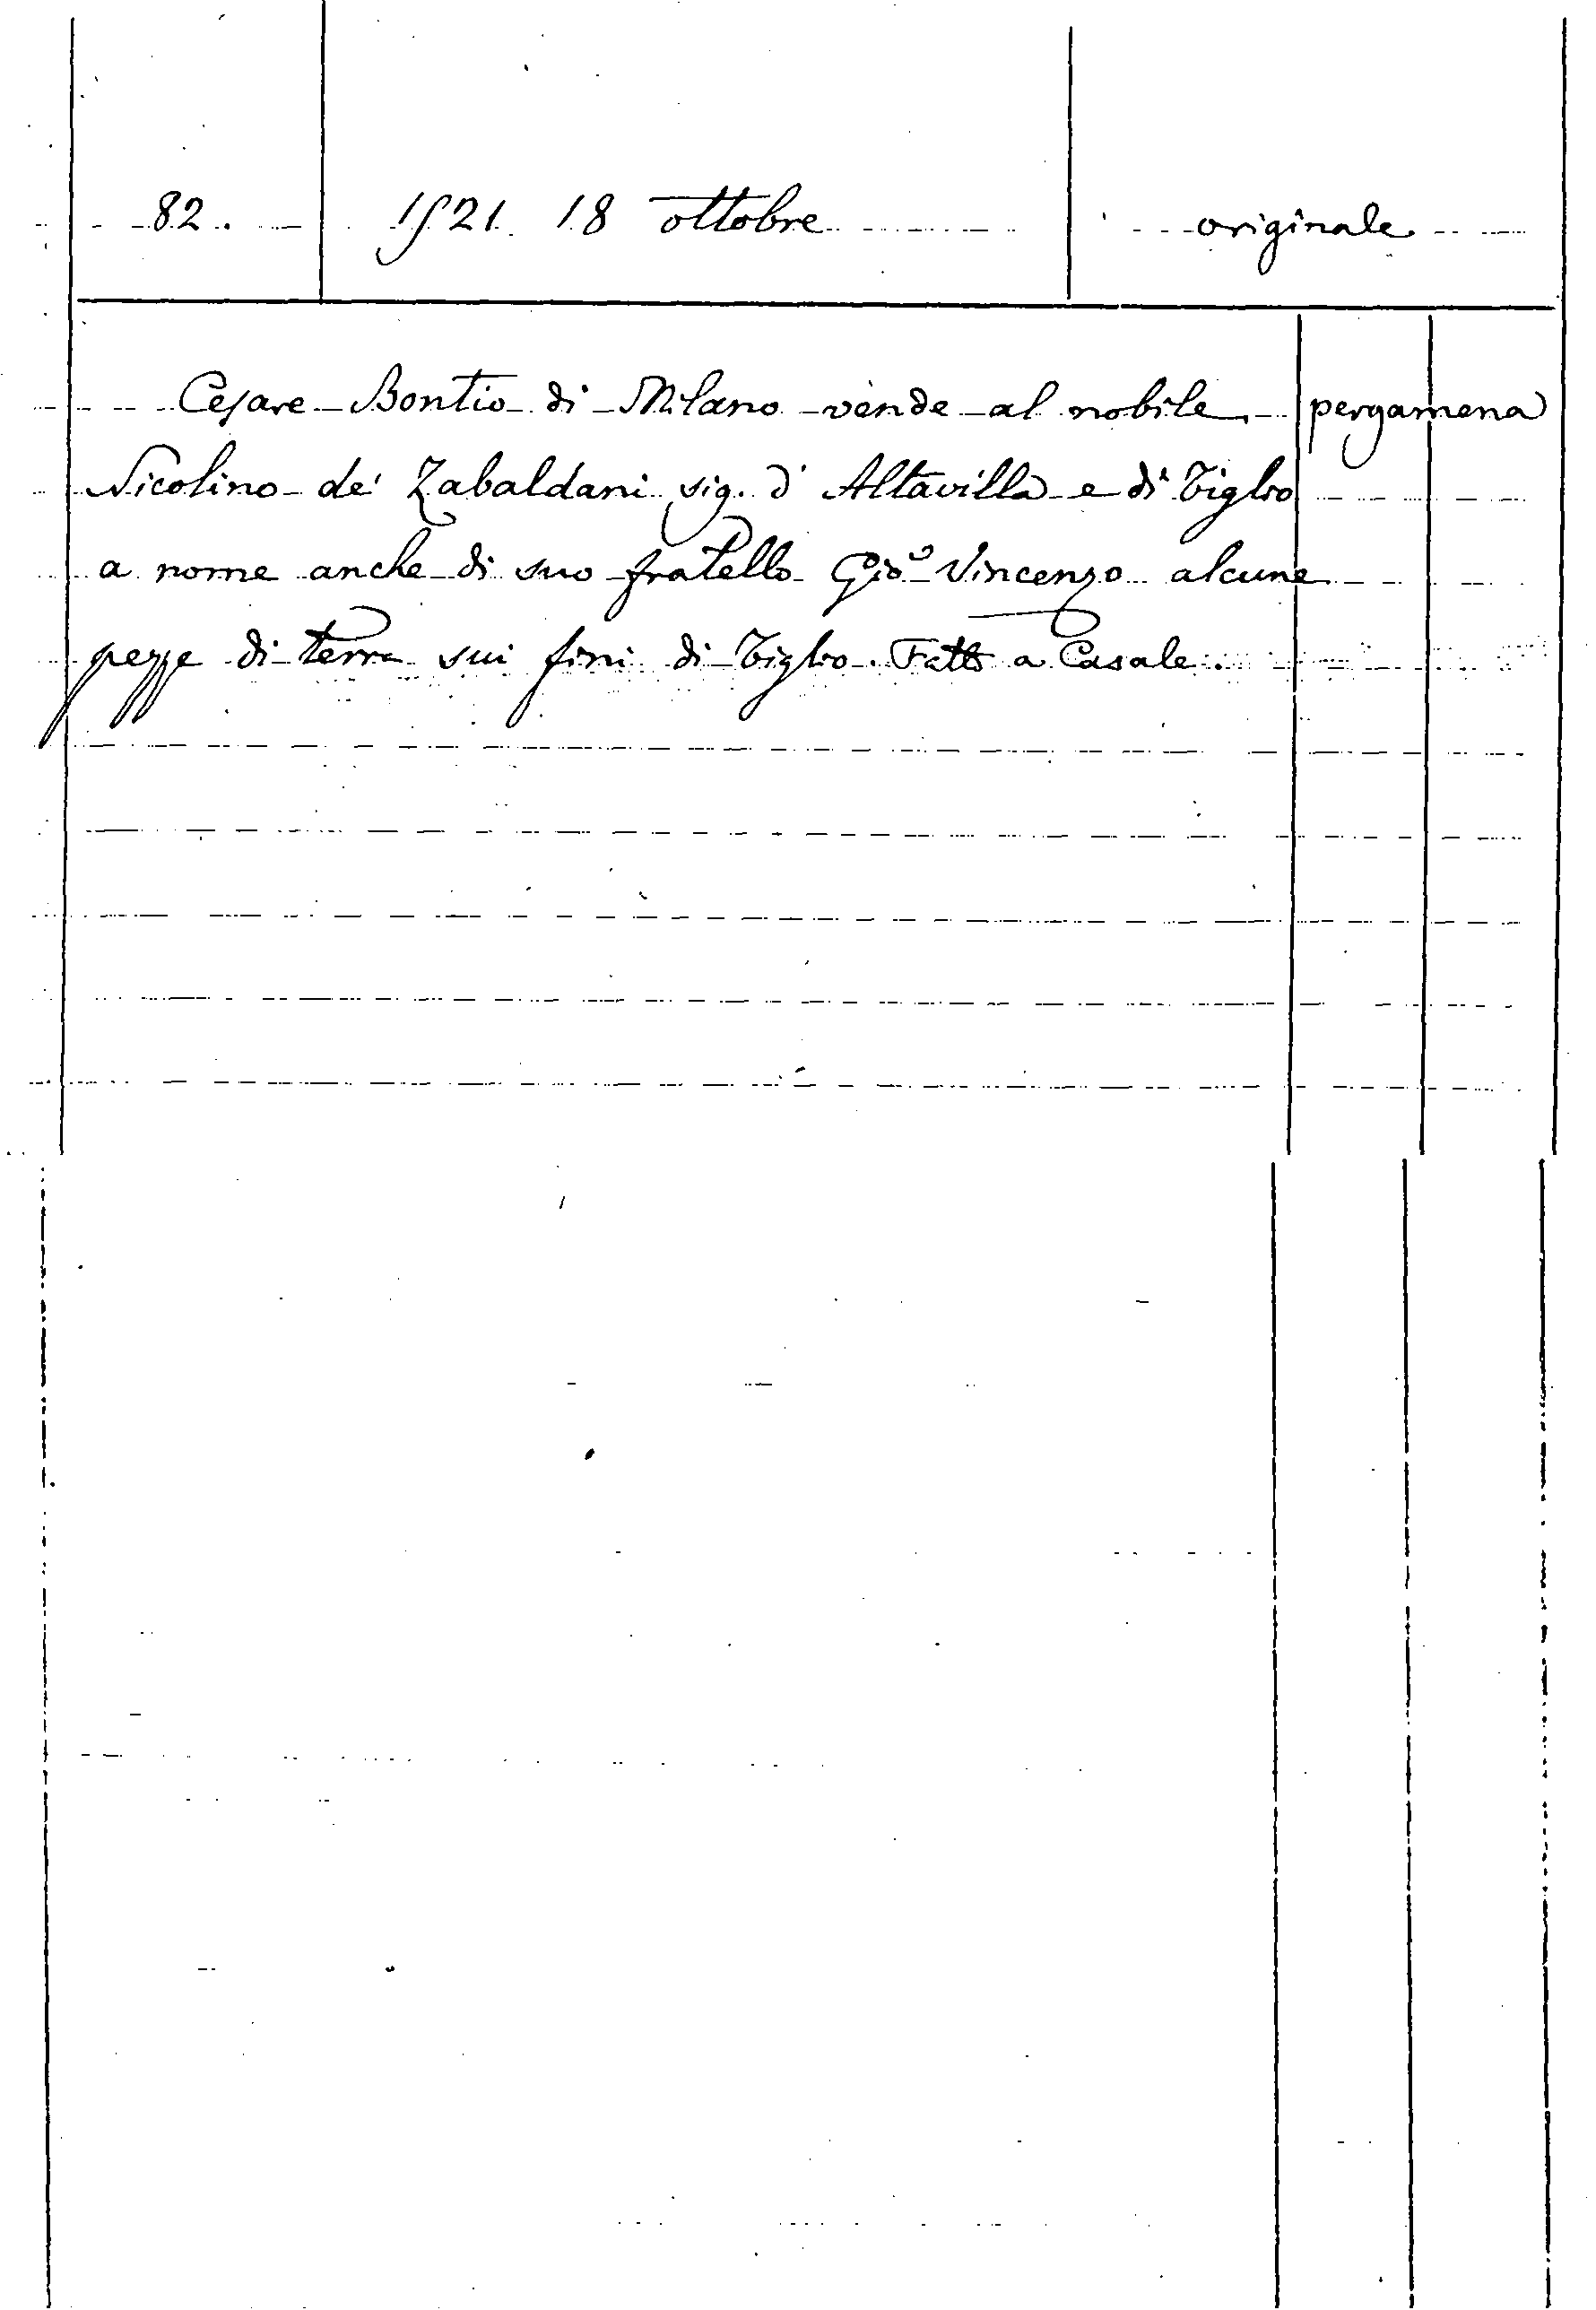 82. 1521. 18 ottobre originale
Cesare Bontio di Milano vende al nobile pergamena
Nicolino de' Zabaldani sig. d'Altavilla e di Viglio
a nome anche di suo fratello Gio Vincenzo alcune
pezze di terra sui fini di Viglio. Fatto a Casale.